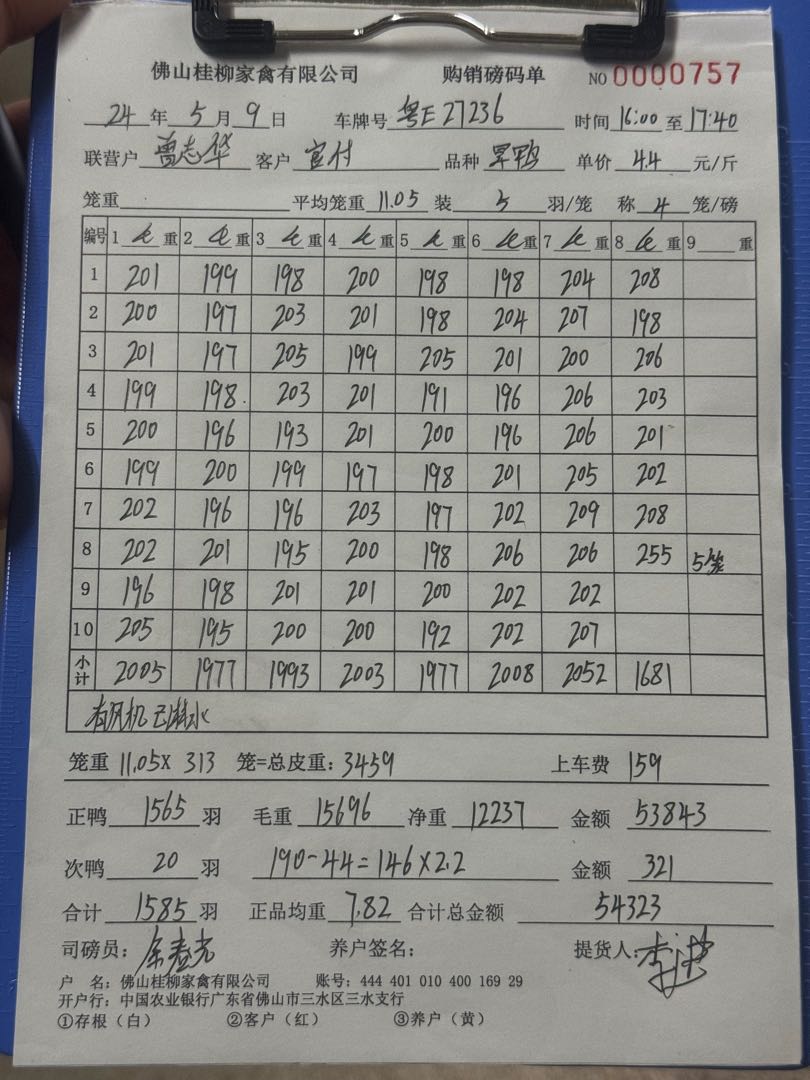 佛山桂柳家禽有限公司 购销磅码单 NO 0000757
24 年 5 月 9 日 车牌号 粤E27236 时间 16:00 至 17:40
联营户 曹志华 客户 宣付 品种 旱鸭 单价 4.4 元/斤
笼重 平均笼重 11.05 装 5 羽/笼 称 4 笼/磅
编号 1 毛 重 2 毛 重 3 毛 重 4 毛 重 5 毛 重 6 毛 重 7 毛 重 8 毛 重 9 重
1 201 199 198 200 198 198 204 208
2 200 197 203 201 198 204 207 198
3 201 197 205 199 205 201 200 206
4 199 198 203 201 191 196 206 203
5 200 196 193 201 200 196 206 201
6 199 200 199 197 198 201 205 202
7 202 196 196 203 197 202 209 208
8 202 201 195 200 198 206 206 255 5笼
9 196 198 201 201 200 202 202
10 205 195 200 200 192 202 207
小计 2005 1977 1993 2003 1977 2008 2052 1681
有风机 已淋水
笼重 11.05X 313 笼=总皮重: 3459 上车费 159
正鸭 1565 羽 毛重 15696 净重 12237 金额 53843
次鸭 20 羽 190-44=146×2.2 金额 321
合计 1585 羽 正品均重 7.82 合计总金额 54323
司磅员: 养户签名: 提货人:
户 名: 佛山桂柳家禽有限公司 账号: 444 401 010 400 169 29
开户行: 中国农业银行广东省佛山市三水区三水支行
①存根（白） ②客户（红） ③养户（黄）